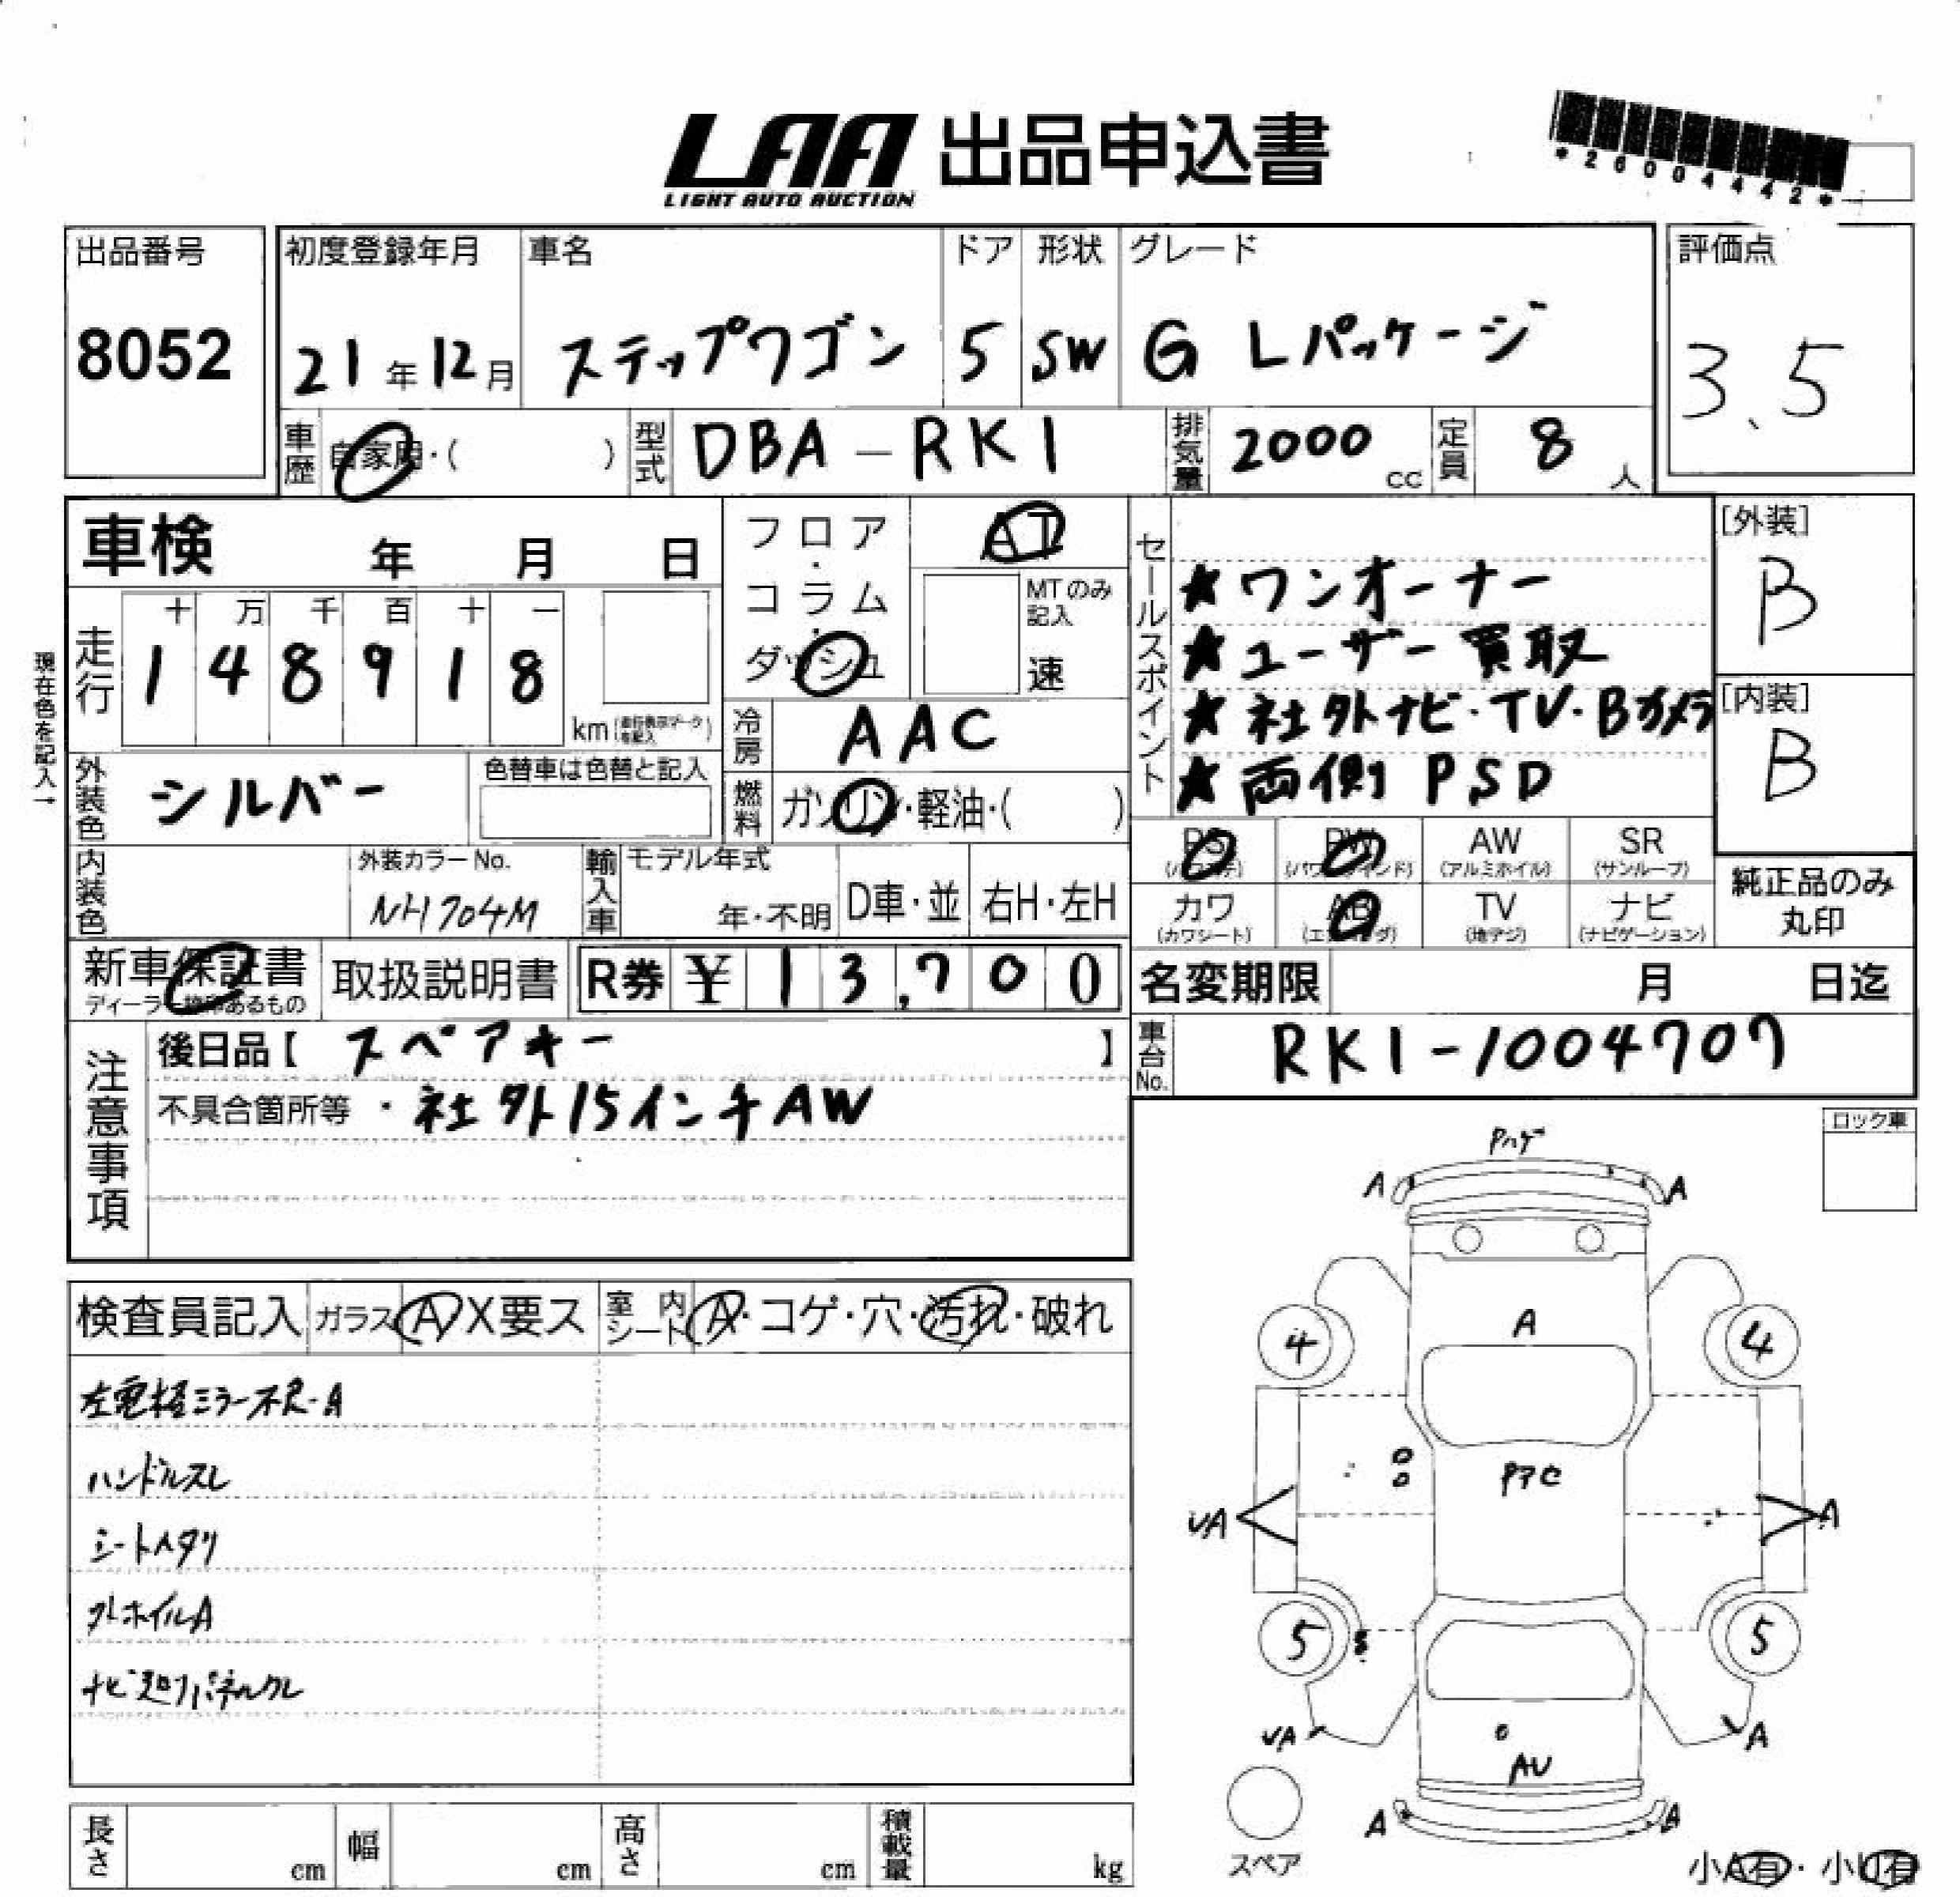 LAA 出品申込書
LIGHT AUTO AUCTION
*26004442*
出品番号
8052
初度登録年月
21年12月
車名
ステップワゴン
ドア
5
形状
SW
グレード
G Lパッケージ
評価点
3.5
車歴 自家用・( )
型式 DBA-RK1
排気量 2000cc
定員 8人
車検 年 月 日
走行
十 万 千 百 十 一
1 4 8 9 1 8
km
現在色を記入→
フロア・コラム・ダッシュ
AT
MTのみ記入
速
冷房 AAC
燃料 ガソリン・軽油・( )
外装色 シルバー
色替車は色替と記入
内装色
外装カラーNo.
NH704M
輸入車
モデル年式
年・不明
D車・並
右H・左H
セールスポイント
★ワンオーナー
★ユーザー買取
★社外ナビ・TV・Bカメラ
★両側PSD
[外装]
B
[内装]
B
PS PW AW SR
(パワステ) (パワーウインド) (アルミホイル) (サンルーフ)
カワ AB TV ナビ
(カワシート) (エアバッグ) (地デジ) (ナビゲーション)
純正品のみ
丸印
新車保証書
取扱説明書
R券 ¥ 13,700
名変期限 月 日迄
車台No. RK1-1004707
注意事項
後日品【 スペアキー 】
不具合箇所等 ・社外15インチAW
ロック車
検査員記入
ガラス A X要ス
室内シート A・コゲ・穴・汚れ・破れ
左電格ミラー不良・A
ハンドルスレ
シートヘタリ
外ホイルA
Pハゲ
A A
A
4 4
Pアセ
VA A
5 5
VA A
AU
A A
スペア
小A有・小U有
長さ cm
幅 cm
高さ cm
積載量 kg